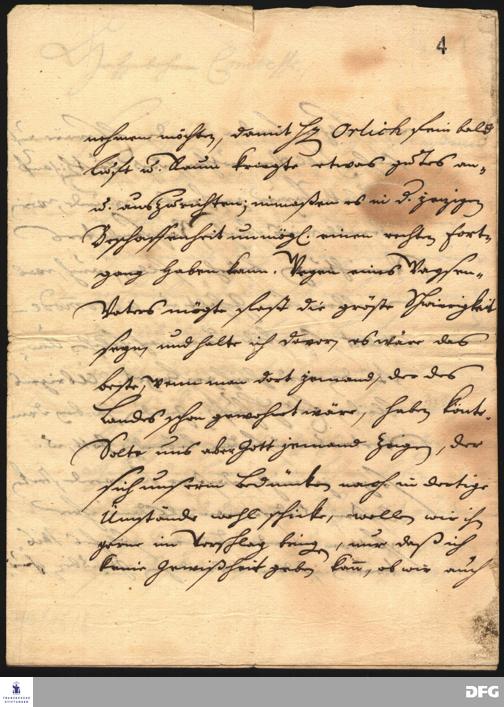 4
nehmen möchten, damit H. Orlich fein bald
lufft u. Raum kriegte etwas gutes an-
u. auszurichten; inmaßen es in d. jezigen
Beschaffenheit unmögl. einen rechten Fort-
gang haben kann. Wegen eines Waysen-
Vaters mögte fast die gröste Schwierigkeit
seyn, und halte ich davor, es wäre das
beste, wenn man dort jemand, der des
Landes schon gewohnet wäre, haben könte.
Solte uns aber Gott jemand zeigen, der
sich unserm Bedünken nach in dortige
Umstände wohl schicke, wollen wir ihn
gerne in Vorschlag bringen, nur daß ich
keine Gewißheit geben kann, ob wir auch
FRANCKESCHE
STIFTUNGEN
DFG